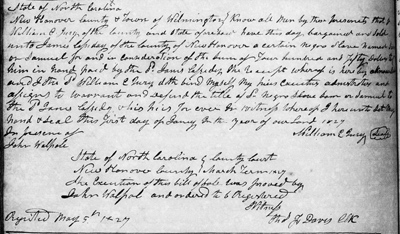 State of North Carolina
New Hanover County & Town of Wilmington Know all Men by these presents that I
William E Jury of the County and State aforesaid have this day, bargained and sold
unto James of the County of New Hanover a certain Negro Slave named
or Samuel Jr and in consideration of the sum of Four hundred and fifty Dollars to
him in hand paid by the Sd. James the Receipt whereof is hereby
and I the Sd William E Jury doth bind Myself, My heirs Executors administrators and
assigns to warrant and defend the title of Sd Negro Slave or Samuel to
the Sd James & his heirs for ever In witness whereof I hereunto set My
hand & seal this First day of Jany in the year of our Lord 1827
In presence of
William E Jury
John Walpole
State of North Carolina & County Court
New Hanover County March Term 1827
The Execution of this bill of sale was proved by
John Walpol and ordered to be Registered
Witness
Thos F Davis Clk
Registed May 5th 1827